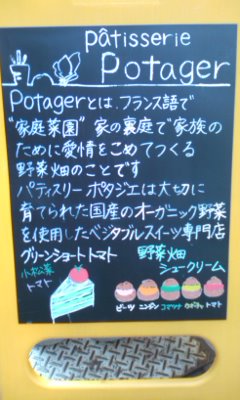 pâtisserie
Potager
Potagerとは、フランス語で
"家庭菜園" 家の裏庭で家族の
ために愛情をこめてつくる
野菜畑のことです
パティスリー ポタジエは大切に
育てられた国産のオーガニック野菜
を使用したベジタブルスイーツ専門店
グリーンショートトマト
小松菜
トマト
野菜畑
シュークリーム
ビーツ ニンジン コマツナ カボチャ トマト